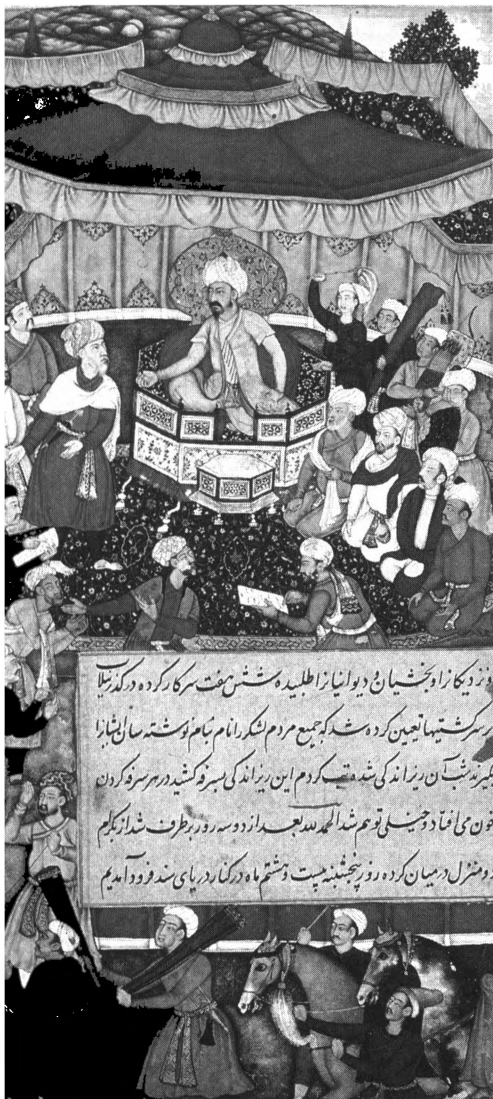 و نزدیکانرا و بخشیان و دیوانیانرا طلبیده شش هفت سرکار کرده در گذر نیلاب
بر سر کشتیها تعیین کرده شد که جمیع مردم لشکر را نام بنام نوشته سان ایشانرا
بگیرند شب آن ریزاندگی شده تب کردم این ریزاندگی بسرفه کشید در هر سرفه کردن
خون می افتاد خیلی توهم شد الحمد لله بعد از دو سه روز برطرف شد از بکرام
دو منزل در میان کرده روز پنجشنبه بیست و هشتم ماه در کنار دریای سند فرود آمدیم